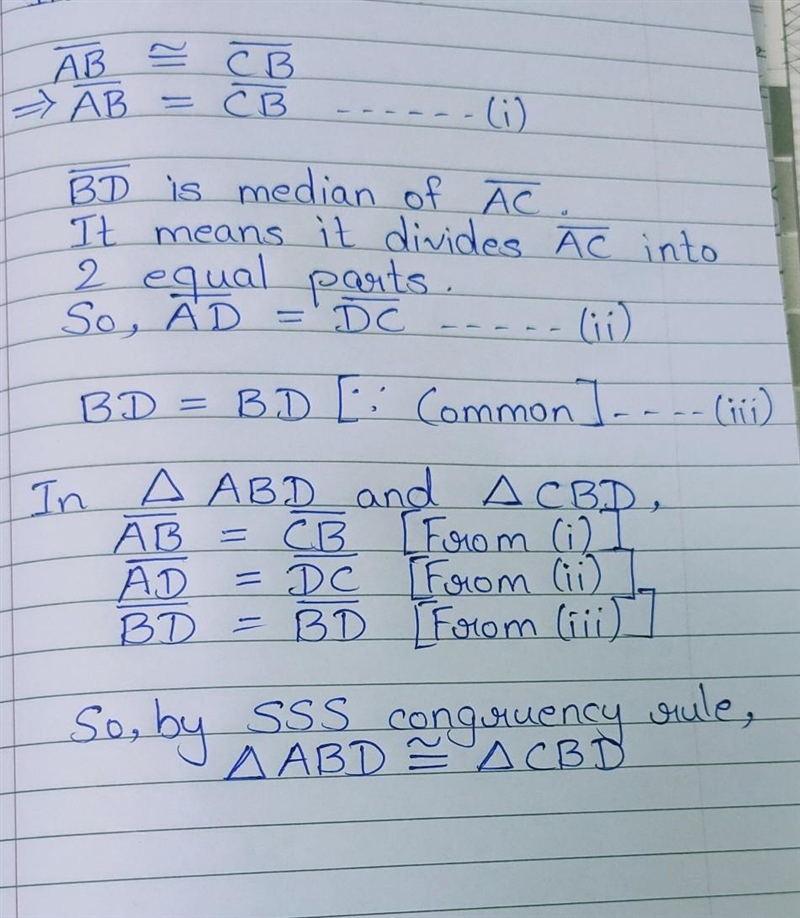 A̅B̅ ≅ C̅B̅
⇒ A̅B̅ = C̅B̅ ------ (i)
B̅D̅ is median of A̅C̅.
It means it divides A̅C̅ into
2 equal parts.
So, A̅D̅ = D̅C̅ ----- (ii)
BD = BD [∵ Common] ---- (iii)
In △ ABD and △ CBD,
A̅B̅ = C̅B̅ [From (i)]
A̅D̅ = D̅C̅ [From (ii)]
B̅D̅ = B̅D̅ [From (iii)]
So, by SSS congruency rule,
△ ABD ≅ △ CBD